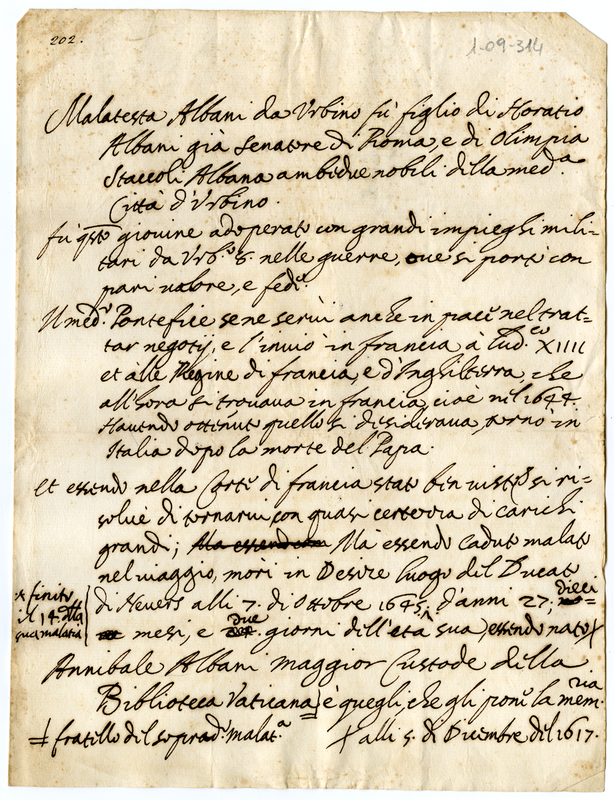 202.
1-09-314
Malatesta Albani da Urbino fù figlio di Horatio
Albani già senatore di Roma, e di Olimpia
Staccoli Albana ambedue nobili della med.a
Città d'Urbino.
fù q͞sto giovine adoperato con grandi impieghi mili=
tari da Urb.o 8. nelle guerre, oue si portò con
pari valore, e fede.
Il med.o Pontefice se ne serui anche in pace nel trat=
tar negotij, e l'inuiò in francia à Lud.co XIIII
et alle Regine di francia, e d'Inghilterra, che
all'hora si trouaua in francia, cioe nel 1644.
Hauendo ottenuto quello si desideraua, tornò in
Italia dopo la morte del Papa.
et essendo nella Corte di francia stato ben visto, si ri=
solue di tornarui con quasi certezza di carichi
grandi; Ma essendo caduto malato
nel viaggio, morì in Desire luogo del Ducato
di Nevers alli 7. di Ottobre 1645, d'anni 27; dieci
mesi, e due giorni dell'età sua, essendo nato X
x finito
il 14. della
sua malatia
Annibale Albani maggior Custode della
Biblioteca Vaticana è quegli, che gli pone la mem.ria
fratello del soprad.o malat.a
X alli 5. di Dicembre del 1617.